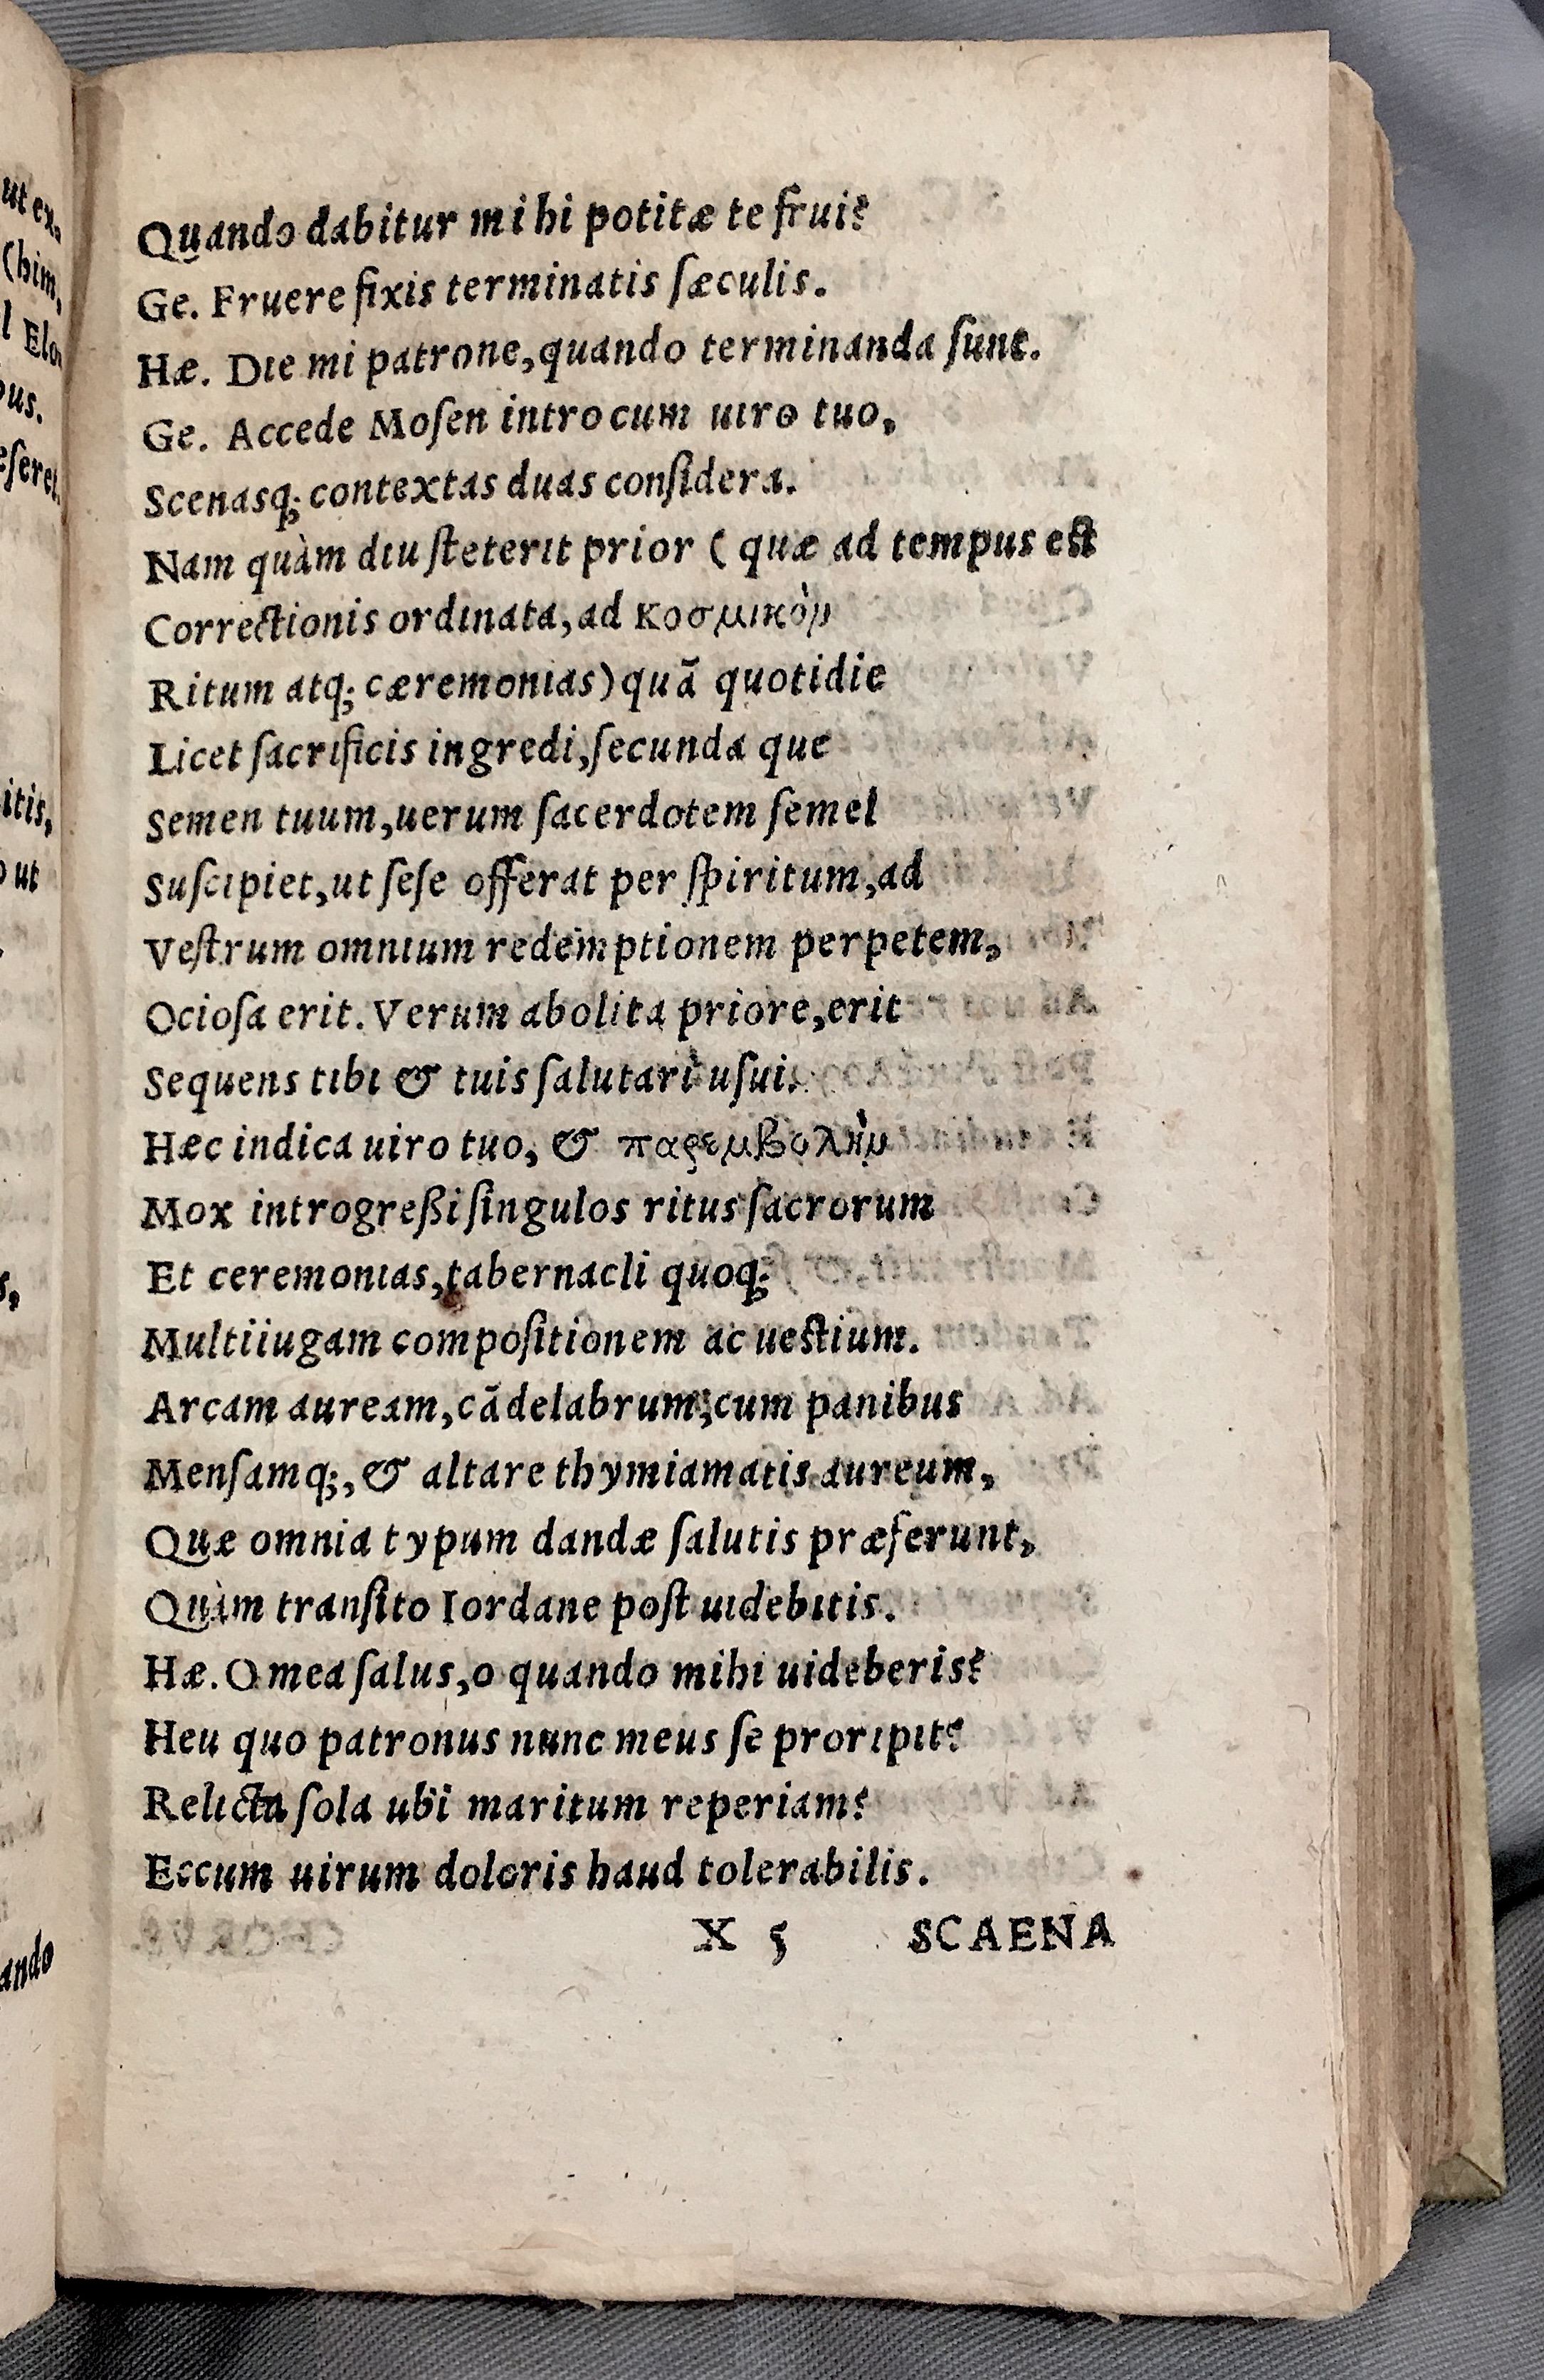 Quando dabitur mihi potitæ te frui?
Ge. Fruere fixis terminatis ſæculis.
Hæ. Dic mi patrone, quando terminanda ſunt.
Ge. Accede Moſen intro cum uiro tuo,
Scenasq; contextas duas conſidera.
Nam quàm diu ſteterit prior ( quæ ad tempus est
Correctionis ordinata, ad κοσμικὸν
Ritum atq; cæremonias) quã quotidie
Licet ſacrificis ingredi, ſecunda que
Semen tuum, uerum ſacerdotem ſemel
Suſcipiet, ut ſeſe offerat per ſpiritum, ad
Veſtrum omnium redemptionem perpetem,
Ocioſa erit. Verum abolita priore, erit
Sequens tibi & tuis ſalutari uſui.
Hæc indica uiro tuo, & παρεμβολὴν
Mox introgreßi ſingulos ritus ſacrorum
Et ceremonias, tabernacli quoq;
Multiiugam compoſitionem ac ueſtium.
Arcam auream, cãdelabrum, cum panibus
Menſamq;, & altare thymiamatis aureum,
Quæ omnia typum dandæ ſalutis præferunt,
Quàm tranſito Iordane poſt uidebitis.
Hæ. O mea ſalus, o quando mihi uideberis?
Heu quo patronus nunc meus ſe proripit?
Relicta ſola ubi maritum reperiam?
Eccum uirum doloris haud tolerabilis.
X 5 SCAENA